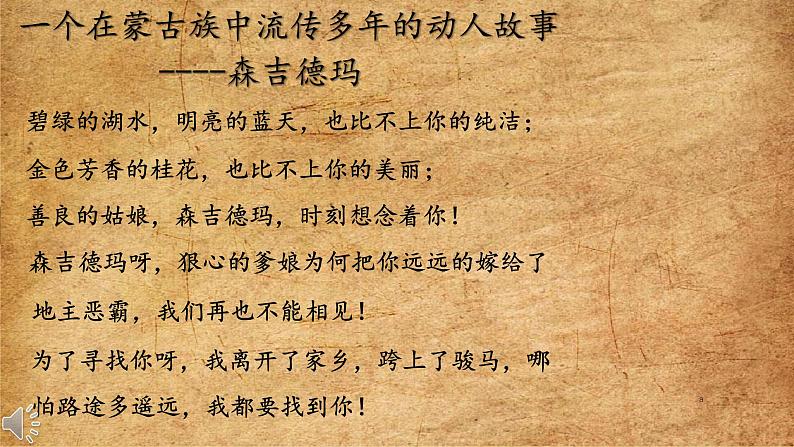 一个在蒙古族中流传多年的动人故事
----森吉德玛
碧绿的湖水，明亮的蓝天，也比不上你的纯洁；
金色芳香的桂花，也比不上你的美丽；
善良的姑娘，森吉德玛，时刻想念着你！
森吉德玛呀，狠心的爹娘为何把你远远的嫁给了
地主恶霸，我们再也不能相见！
为了寻找你呀，我离开了家乡，跨上了骏马，哪
怕路途多遥远，我都要找到你！